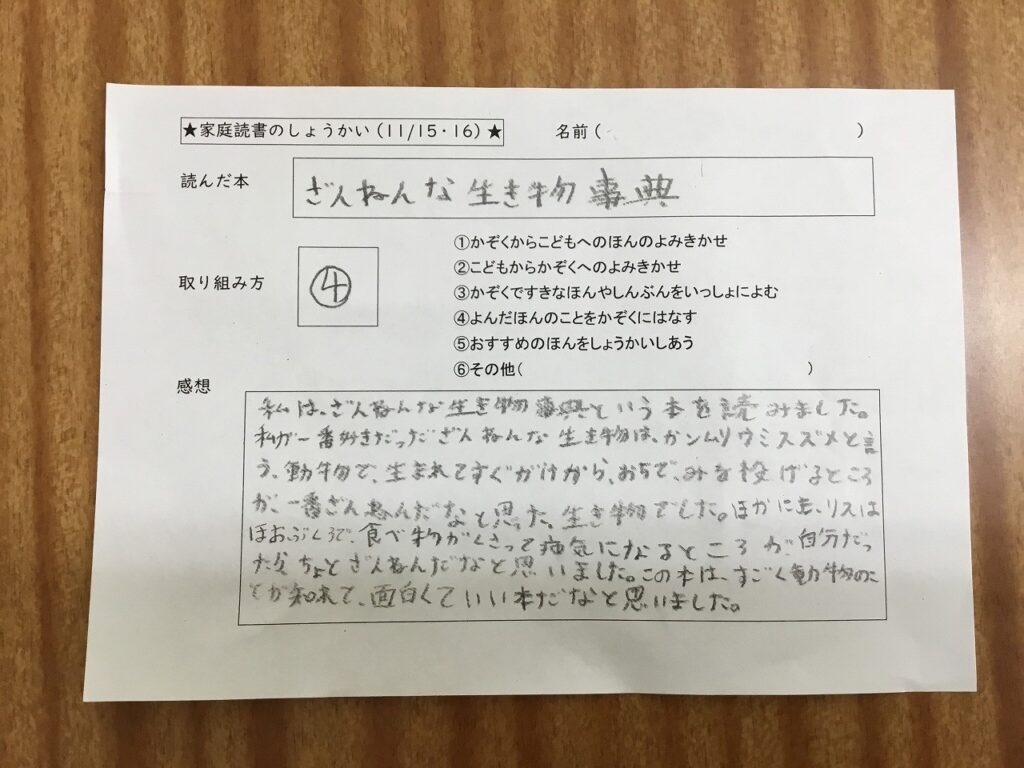 ★家庭読書のしょうかい(11/15・16)★ 名前( )
読んだ本 ざんねんな生き物事典
取り組み方 ④
①かぞくからこどもへのほんのよみきかせ
②こどもからかぞくへのよみきかせ
③かぞくですきなほんやしんぶんをいっしょによむ
④よんだほんのことをかぞくにはなす
⑤おすすめのほんをしょうかいしあう
⑥その他( )
感想
私は、ざんねんな生き物事典という本を読みました。
私が一番好きだっだざんねんな生き物は、カンムリウミスズメと言
う、動物で、生まれてすぐがけから、おちて、みを投げるところ
が、一番ざんねんだなと思った、生き物でした。ほかにも、リスは
ほおぶくろで、食べ物がくさって病気になるところが、自分だっ
たら、ちょとざんねんだなと思いました。この本は、すごく動物のこ
とが知れて、面白くていい本だなと思いました。